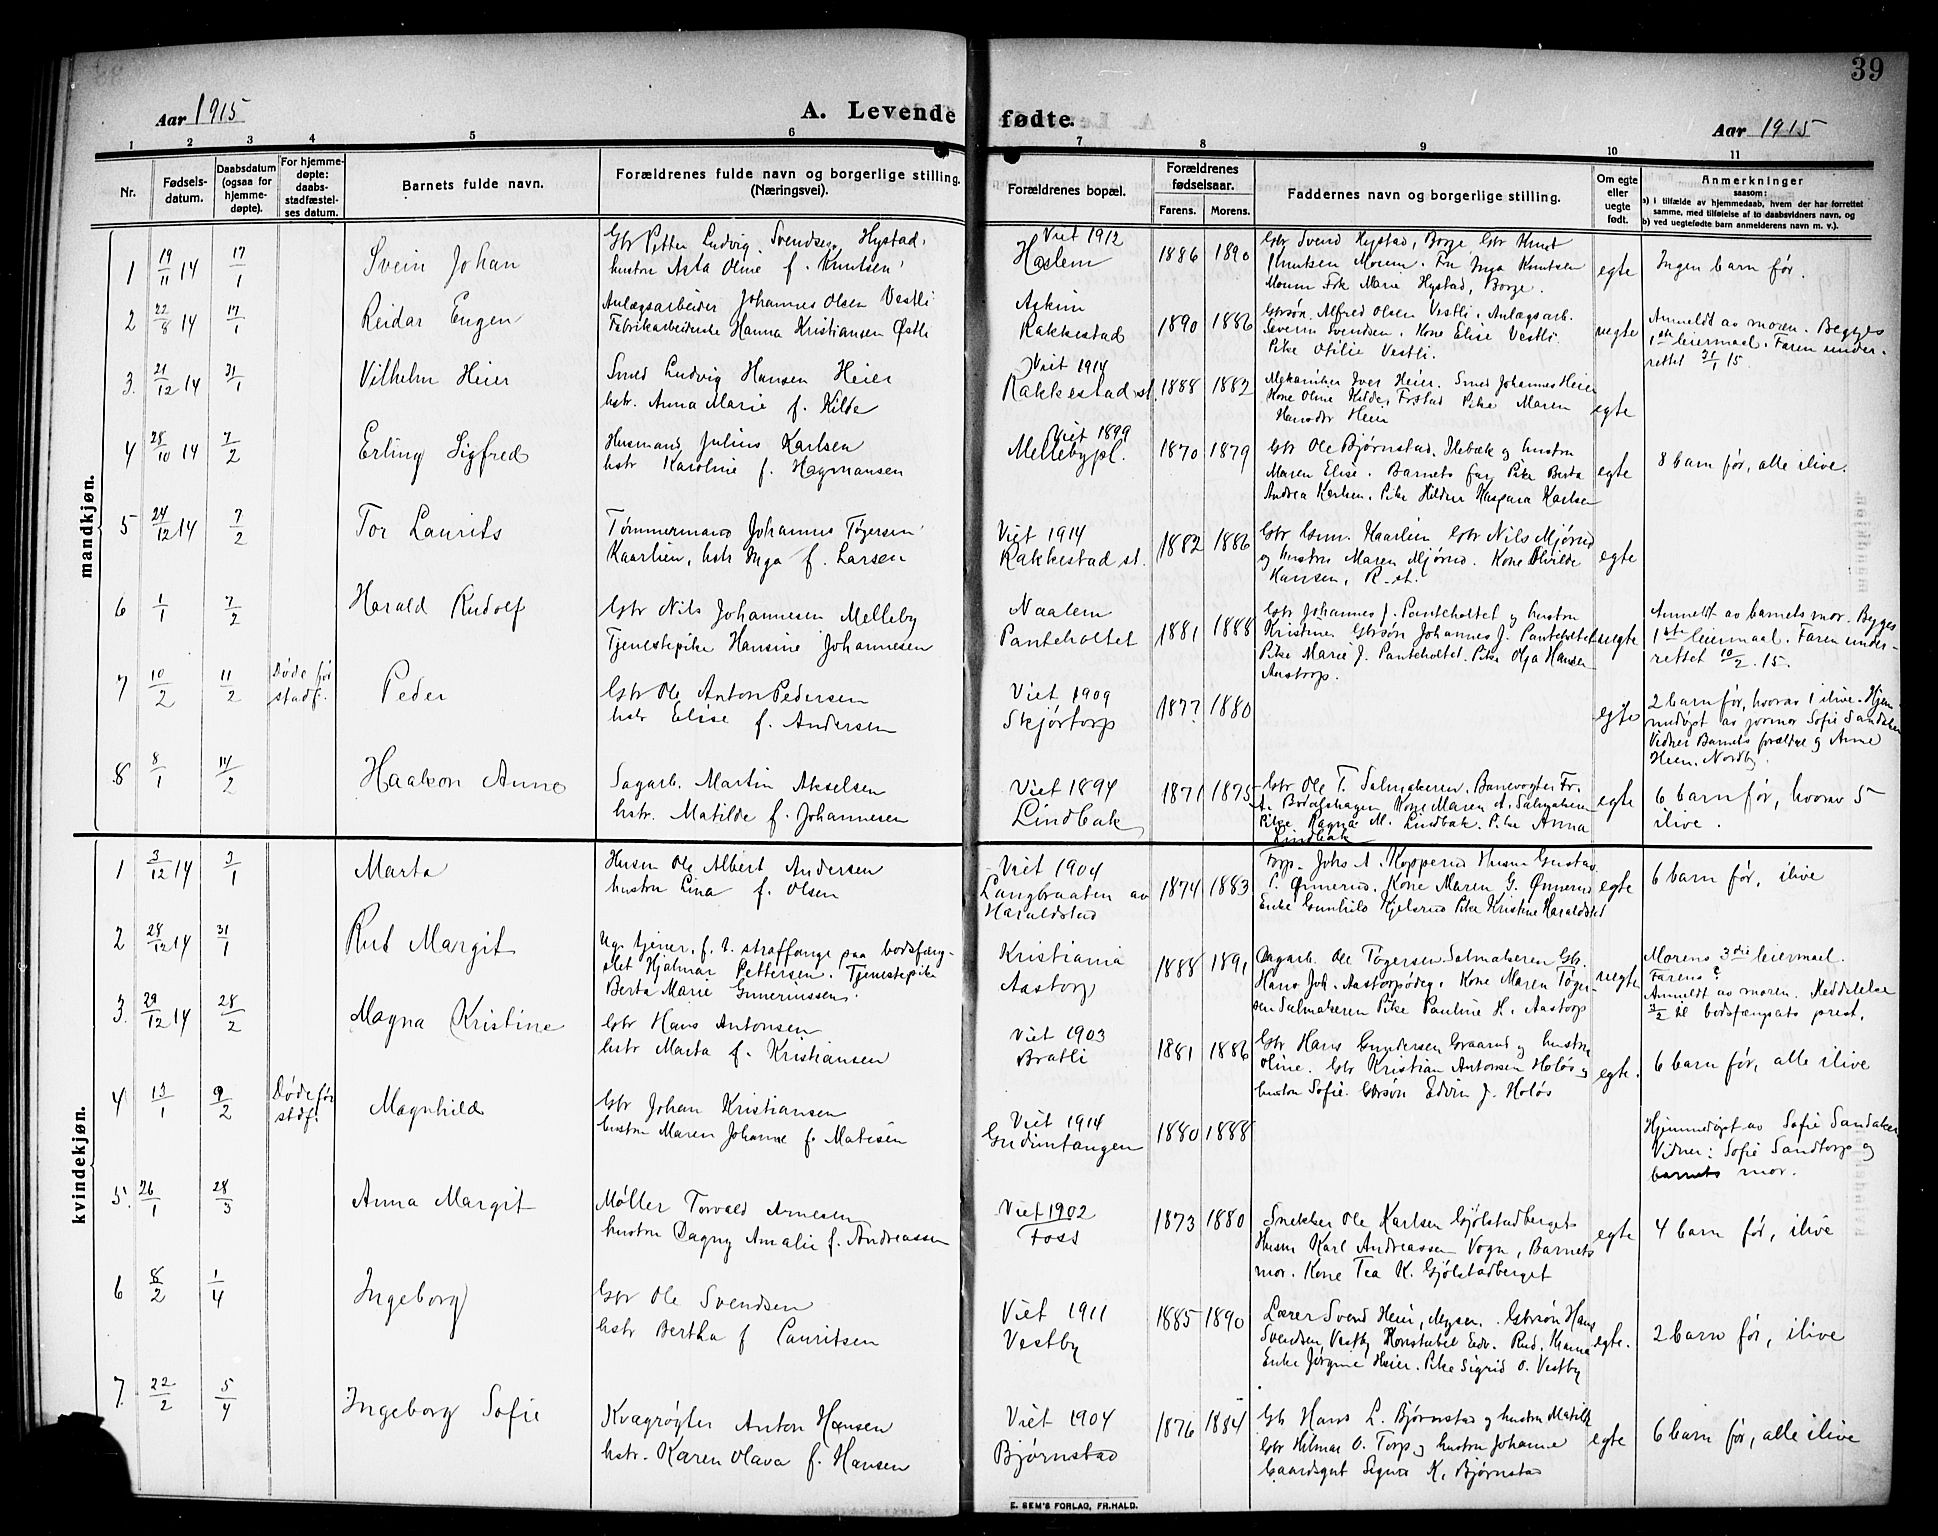 39
Aar 1915
A. Levende fødte.
Aar 1915
1 2 3 4 5 6 7 8 9 10 11
Nr.
Fødselsdatum.
Daabsdatum (ogsaa for hjemmedøpte).
For hjemmedøpte: daabsstadfæstelses datum.
Barnets fulde navn.
Forældrenes fulde navn og borgerlige stilling.
(Næringsvei).
Forældrenes bopæl.
Forældrenes fødselsaar.
Farens. Morens.
Faddernes navn og borgerlige stilling.
Om egte eller uegte født.
Anmerkninger
saasom:
a) i tilfælde av hjemmedaab, hvem der har forrettet
samme, med tilføielse af to daabsvidners navn, og
b) ved uegtefødte barn anmelderens navn m. v.).
mandkjøn.
1 19/11 14 17/1 Svein Johan
Gbr Petter Ludvig Svendsen Hystad,
hustru Asta Oline f. Knutsen
Viet 1912
Haslem
1886 1890
Gbr Svend Hystad, Borge Gbr Knut
Knutsen Moum. Fru Inga Knutsen
Moum Frk Marie Hystad, Borge.
egte
Ingen barn før.
2 22/8 14 17/1 Reidar Eugen
Anlægsarbeider Johannes Olsen Vestli
Fabrikarbeiderske Hanna Kristiansen Østli
Askim
Rakkestad
1890 1886
Gbrsøn. Alfred Olsen Vestli. Anlægsarb.
Severin Svendsen. Kone Elise Vestli
Pike Otilie Vestli.
uegte
Anmeldt av moren. Begges
1ste leiermaal. Faren underrettet 31/1 15
3. 21/12 14 31/1 Vilhelm Heier
Smed Ludvig Hansen Heier
hstr. Anna Marie f. Kilde
Viet 1914
Rakkestad st.
1888 1882
Mekaniker Iver Heier. Smed Johannes Heier
Kone Oline Kilde, Pike Maren
Heier
egte
4 28/10 14 7/2 Erling Sigfred
Husmand Julius Karlsen
hstr Karoline f. Hagmansen
Viet 1899
Mellebypl.
1870 1879
Gbr Ole Bjørnstad. og hustru
Maren Elise. Barnets far Pike Berta
Andrea Karlsen. Pike Karlsen
egte
8 barn før, alle ilive.
5 24/12 14 7/2 Tor Laurits
Tømmermand Johannes Tøgersen
Kaarlien, hstr Inga f. Larsen
Viet 1914
Rakkestad st.
1882 1886
Gbr Gun. Haarlien Gbr Nils Mjørud
og hustru Maren Mjørud. Kone
Hansen, R. st.
egte
6 1/1 7/2 Harald Rudolf
Gbr Nils Johannesen Melleby
Tjenestepike Hansine Johannesen
Naalem
Panteholtet
1881 1888
Gbr Johannes J. Panteholtet og hustru
Kristine Gbrsøn Johannes J. Panteholtet
Pike Marie J. Panteholtet. Pike Olga Hansen
Aastorp.
uegte
Anmeldt av barnets mor. Begges
1ste leiermaal. Faren underrettet 10/2 15.
7 10/2 11/2 Døde før stadf. Peder
Gbr Ole Anton Pedersen
hstr Elise f. Andersen
Viet 1909
Skjørtorp
1877 1880
egte
2 barn før, hvorav 1 ilive. Hjemmedøpt av jormor Sofie Sandaker
Vidner Barnets forældre og Anne
Heen. Nordby
8 8/1 14/2 Haakon Anne
Sagarb. Martin Akselsen
hstr. Matilde f. Johannesen
Viet 1894
Lindbak
1871 1875
Gbr Ole T. Salmakeren. Banevogter Fr.
A. Bodalshagen Kone Maren A. Salmakeren
Pike Ragna M. Lindbak. Pike Anna
Lindbak
egte
6 barn før, hvorav 5
ilive.
kvindekjøn.
1 3/12 14 3/1 Marta
Husm Ole Albert Andersen
hustru Lina f. Olsen
Viet 1904
Langbraaten av
Haraldstad
1874 1883
Torp. Johs A. Kopperud Husm Gustav
Ønnerud. Kone Maren G. Ønnerud
Enke Gunhild Kjelsrud Pike Kristine Haraldstad
egte
6 barn før, ilive
2 28/12 14 31/1 Rut Margit
Ug. tjener, f. t. straffange paa bodsfængslet Hjalmar Pettersen. Tjenestepike
Berta Marie Gunerinssen.
Kristiania
Aastorp
1888 1891
Dagarb. Ole Tøgersen Salmakeren Gbr.
Hans Joh. Aastorpødeg. Kone Maren Tøgersen Salmakeren Pike Pauline H. Aastorp
uegte
Morens 3die leiermaal.
Farens ?
Anmeldt av moren. Meddelelse
3/2 til bodsfængsels prest.
3. 29/12 14 28/2 Magna Kristine
Gbr Hans Antonsen
hstr Marta f. Kristiansen
Viet 1903
Bratli
1881 1886
Gbr Hans Gundersen Graarud og hustru
Oline. Gbr Kristian Antonsen Holøs og
hustru Sofie. Gbrsøn Edvin J. Holøs
egte.
6 barn før, alle ilive
4 13/1 9/2 Døde før stdf. Magnhild
Gbr Johan Kristiansen
hustru Maren Johanne f. Matisen
Viet 1914
Gudimtangen
1880 1888
Hjemmedøpt av Sofie Sandaker
Vidner: Sofie Sandtorp og
barnets mor.
5. 26/1 28/3 Anna Margit
Møller Torvald Arnesen
hustru Dagny Amalie f. Andreassen
Viet 1902
Foss
1873 1880
Snekker Ole Karlsen Gjølstadberget
Husm Karl Andreassen Vogn, Barnets
mor. Kone Tea K. Gjølstadberget
egte
4 barn før, ilive
6 8/2 1/4 Ingeborg
Gbr Ole Svendsen
hstr Bertha f Lauritsen
Viet 1911
Vestby
1885 1890
Lærer Svend Heier, Mysen. Gbrsøn Hans
Svendsen Vestby Konstabel Edv. Rud,
Enke Jørgine Heier. Pike Sigrid O. Vestby
egte.
2 barn før, ilive
7. 22/2 5/4 Ingeborg Sofie
Kvægrøgter Anton Hansen
hstr. Karen Olava f. Hansen
Viet 1904
Bjørnstad
1876 1884
Gb Hans L. Bjørnstad og hustru Matilde
Gbr Hilmar O. Torp og hustru Johanne
Gaardsgut Signe K. Bjørnstad
egte
6 barn før, alle ilive
E. SEM'S FORLAG, FR.HALD.